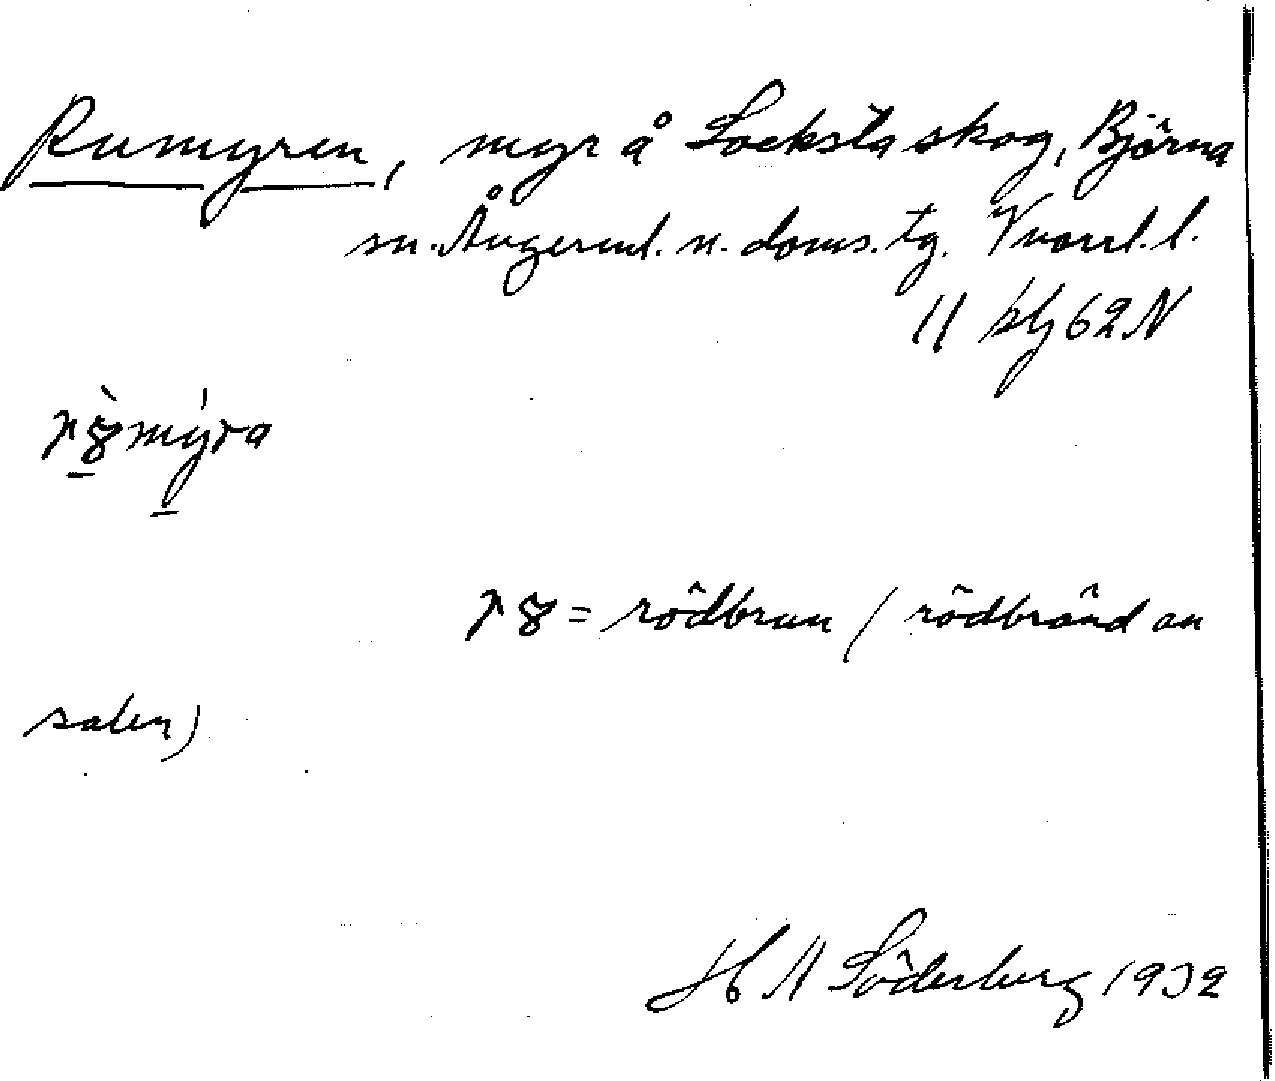 Rumyren, myr å Locksta skog, Björna
sn. Ångerml. n. doms. tg. Västernorrl. l.
11 blj 62 N
rödbrun / rödbränd an
salen)
H N Söderberg 1932